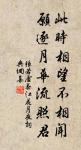 此時相望不相聞
願逐月華流照君
張若虛春江花月夜詞
典閣集